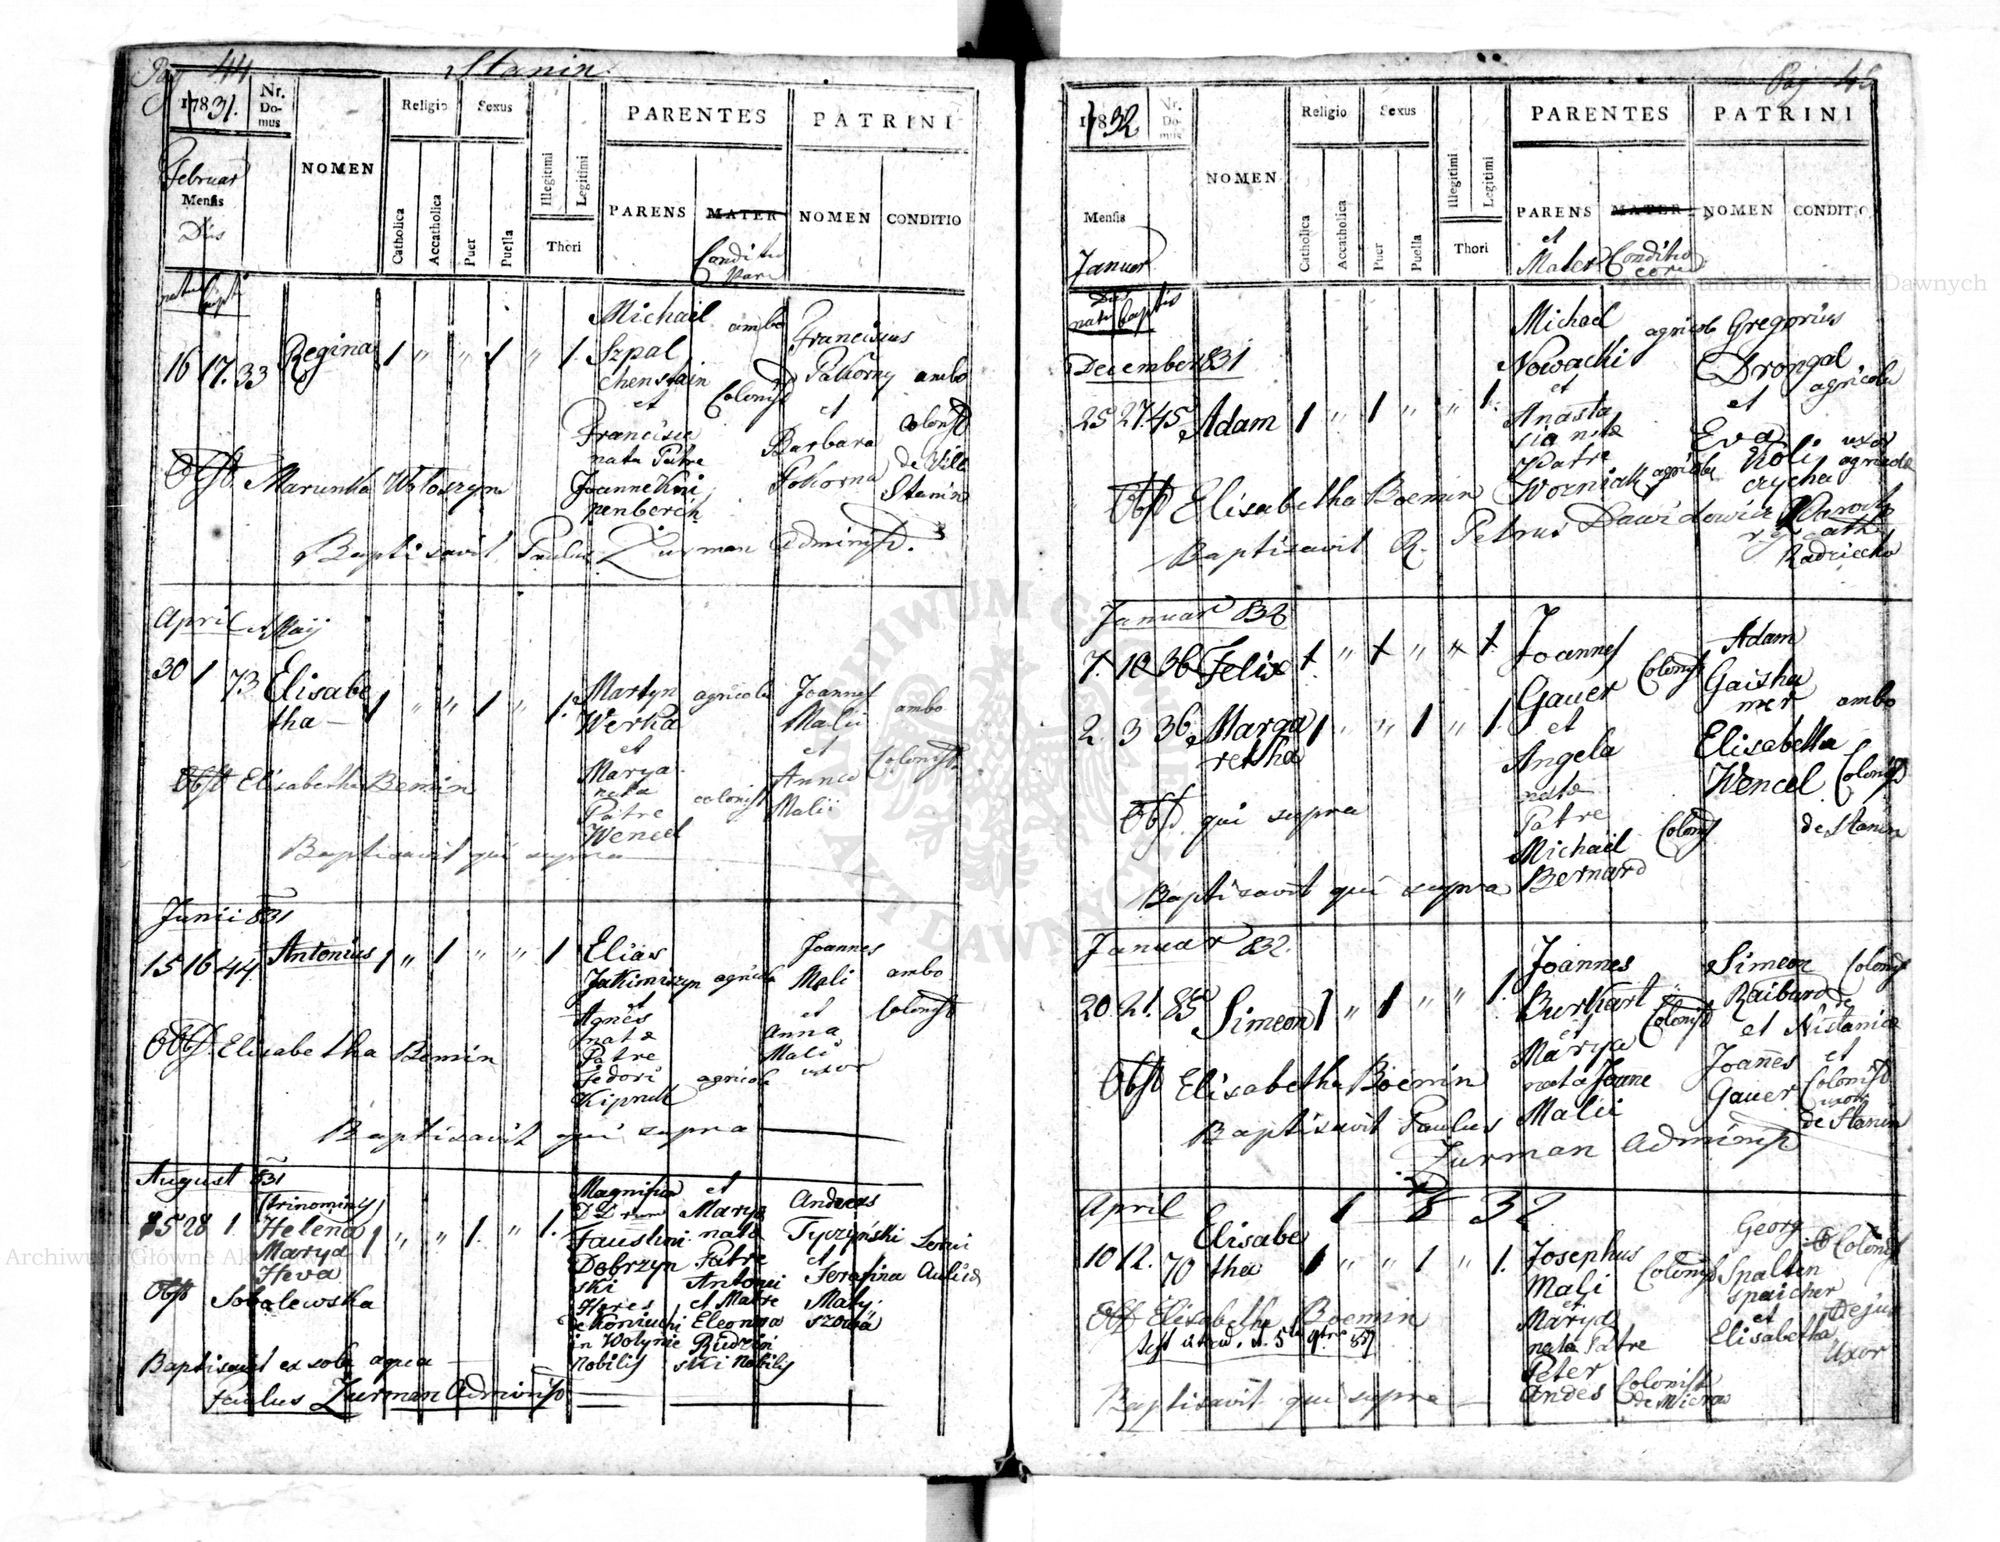 Pag 44
Stanin.
1831.
Nr. Domus
NOMEN
Religio
Sexus
PARENTES
PATRINI
Februar
Mensis
Dies
Catholica
Accatholica
Puer
Puella
Illegitimi
Legitimi
Thori
PARENS
MATER
NOMEN
CONDITIO
Conditio
nati bapti
16 17. 33 Regina 1 " " 1 " 1.
Michael
Szpal
chenstain
et
Francisca
nata Patre
Joanne Kni
penberch
ambo
Colonist
Franciscus
Pakorny ambo
et Colonist
Barbara de Vill
Pokorna Stanin
Obst Marunka Wotoszyn
Baptisavit Paulus Zurman Administ.
April et Maij
30 1 73 Elisabe
tha — 1 " " 1 " 1.
Martyn agricola
Werka
et
Marya
nata
Patre colonist
Wencel
Joannes
Malii ambo
et
Anna Colonist
Malii
Obst Elisabetha Bemin
Baptisavit qui supra
Junii 831
15 16 44. Antonius 1 " 1 " " 1
Elias
Jakimiszyn agricola
et
Agnes
nata
Patre
Fedori agricola
Kipruk
Joannes
Mali ambo
et Colonist
Anna
Mali
uxor
Obst. Elisabetha Bemin
Baptisavit qui supra
August 831
(trinominis)
28 1. Helena
Marya
Heva
1 " " 1. " 1.
Magnificus
Faustini
Dobrzyn
ski
Heres
de Koniuchi
in Wolynie
Nobilis
et
Marya
nata
Patre
Antonii
et Matre
Eleonora
Rudzin
ski Nobilis
Andreas
Tyczyński
et
Serafina
Maty
szowa
Obst Sobolewska
Baptisavit ex sola aqua
Paulus Zurman Administ
Pag 45
1832
Nr. Domus
NOMEN
Religio
Sexus
PARENTES
PATRINI
Mensis
Januar
Catholica
Accatholica
Puer
Puella
Illegitimi
Legitimi
Thori
PARENS
et
Mater
MATER
Conditio
NOMEN
CONDITIO
Dies
nati baptis
December 831
25 27. 45 Adam 1 " 1 " " 1.
Michael agricola
Nowacki
et
Anasta
sia nata
Patre
Worniak agricola
Gregorius
Drongal
agricola
et
Eva uxor
Koli agricola
czycha
Obst Elisabetha Boemin
Baptisavit R. Petrus Dawidowicz Paroch
r. g. cath
Radziecho
Januar 832
7. 10 36 Felix 1 " 1 " " 1.
2. 3 36. Marga
retha 1 " " 1 " 1.
Joannes
Gauer Colonist
et
Angela
nata
Patre
Michael Colonist
Bernard
Adam
Gaisha
mer ambo
Elisabetha
Wencel Colonist
de Stanin
Obst qui supra
Baptisavit qui supra
Januar 832.
20 21. 85 Simeon 1 " 1 " " 1.
Joannes
Burkart
et Colonist
Marya
nata Joane
Malii
Simeon Colonist
Raibard de
et Nistanic
Joannes et
Gauer Colonist
uxor
de Stanin
Obst Elisabetha Boemin
Baptisavit Paulus
Zurman Administ
April 1832
10 12. 70 Elisabe
tha 1 " " 1 " 1.
Josephus
Mali Colonist
et
Marya
nata Patre
Peter
Andes Colonist
Georg Colonist
Spalten
speicher
et ejus
Elisabetha
Uxor
Obst Elisabetha Boemin
Baptisavit qui supra
Archiwum Główne Akt Dawnych
ARCHIWUM GŁÓWNE AKT DAWNYCH
Archiwum Główne Akt Dawnych